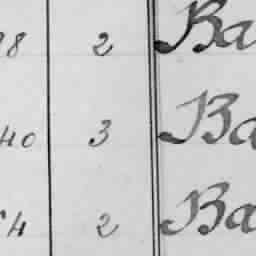 98 2 Ba
40 3 Ba
4 2 Ba